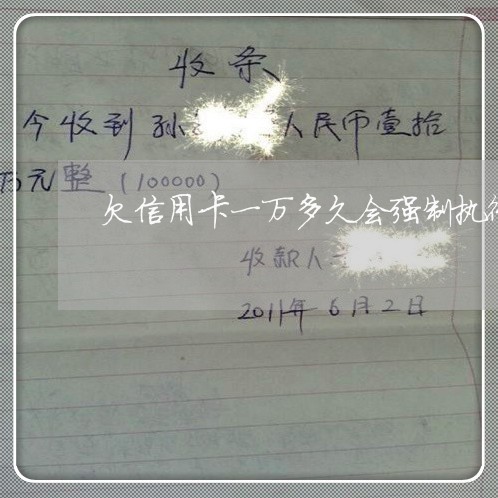 收条
今收到孙 人民币壹拾
万元整(100000)
欠信用卡一万多久会强制执行
收款人
2011年6月2日